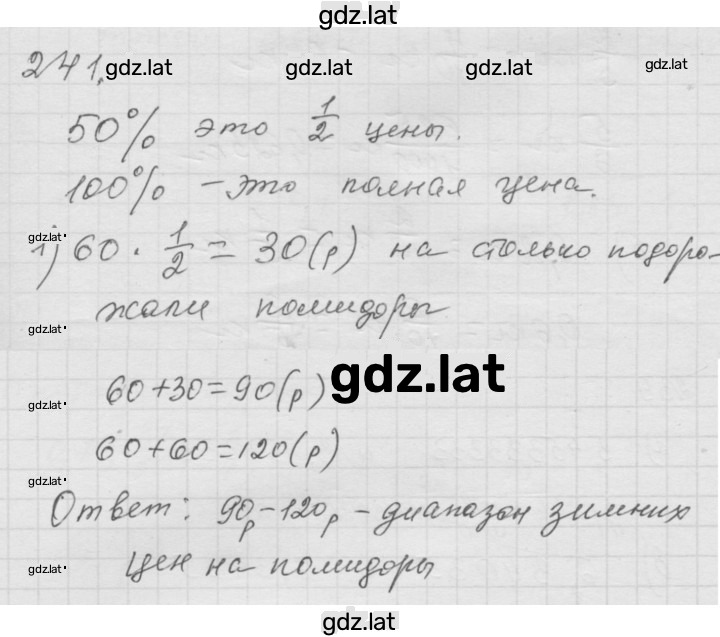 gdz.lat
241. gdz.lat gdz.lat gdz.lat gdz.lat
50% это 1/2 цены.
100% – это полная цена.
gdz.lat
1) 60 · 1/2 = 30(р) на столько подоро-
жали помидоры
gdz.lat
60+30=90(р) gdz.lat
gdz.lat
60+60=120(р)
gdz.lat
Ответ: 90р–120р – диапазон зимних
цен на помидоры
gdz.lat
gdz.lat